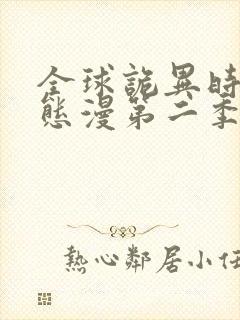 全球詭異時
態漫第二季
熱心鄰居小任